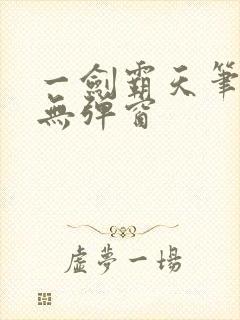 一劍霸天筆
無彈窗
虛夢一場